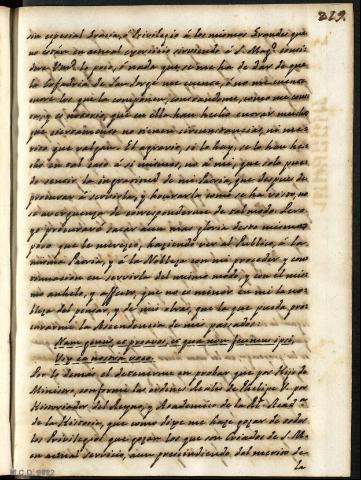 219.
sin especial Gracia, ó Privilegio á los mismos Grandes que
no están en actual exercicio sirviendo á S. Magd.
poco, ó nada que se me ha de dar de que
la Cofadria de San Jorge me cuente, ó no me cuente
entre los que la componen, constandome, como me cons-
ta, y es notorio, que en ella han hecho entrar muchos
que ciertamente no tienen circunstancias, ni me-
rito que valgan. El agravio, si lo hay, se lo han he-
cho en tal caso á si mismos, no á mi, que solo pue-
do sentir la ingratitud de mi Patria, que despues de
procurar á servirla, y honrarla como se ha visto, no
se averguenza de corresponderme de tal modo. Pero
yo procuraré sacar aun mas gloria de esto mismo
poco que le merezco, haziendo ver al Publico, á la
misma Patria, y á la Nobleza con mi proceder y con-
tinuacion en servirla del mismo modo, y con el mis-
mo anhelo, y affecto, que no es menor en mi la no-
bleza del pensar, y de mis obras, que lo que pueda pro-
venirme la Ascendencia de mis passados:
Nam genus, et proavos, et quæ non fecimus ipsi,
Vix ea nostra voco.
Por lo demás el detenerme en probar que por Hijo de
Ministro, conforme las ordenes Reales de Phelipe V. por
Historiador del Reyno, y Academico de la Rl. Acadª.
de la Historia, que como dixe me haze gozar de todos
los Privilegios que gozan los que son Criados de S. M.
en actual servicio, aun prescindiendo del merito de
la
M.C.D. 2022